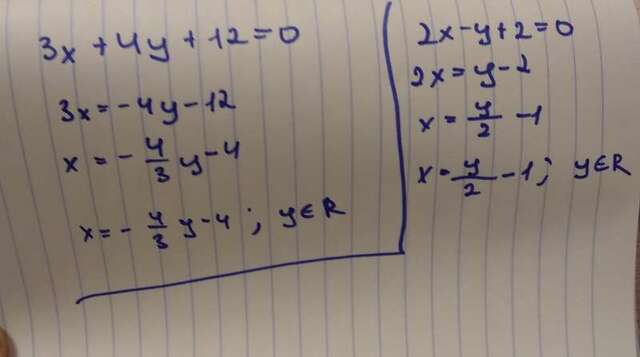 3x + 4y + 12 = 0
3x = -4y - 12
x = - 4/3 y - 4
x = - 4/3 y - 4 ; y ∈ R
2x - y + 2 = 0
2x = y - 2
x = y/2 - 1
x = y/2 - 1 ; y ∈ R